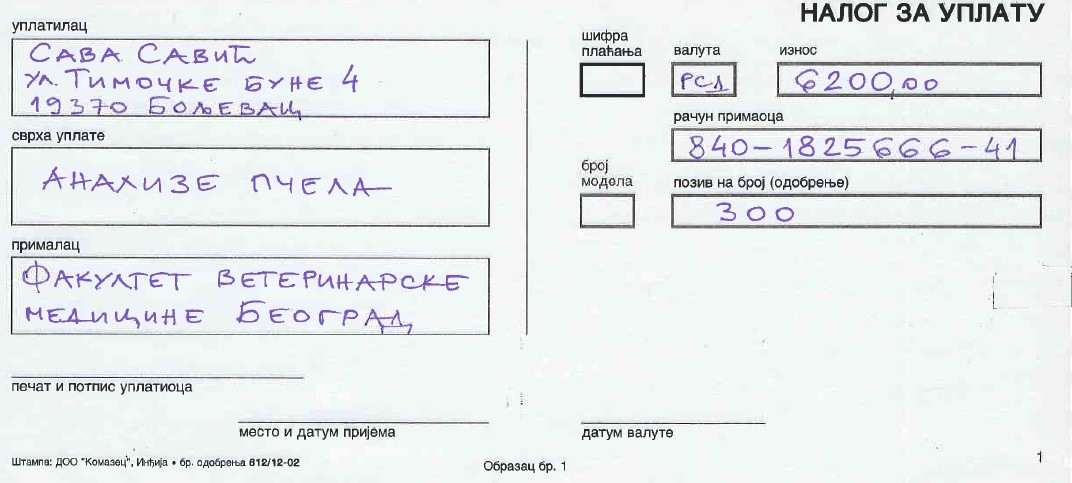 НАЛОГ ЗА УПЛАТУ
уплатилац
САВА САВИЋ
УЛ. ТИМОЧКЕ БУНЕ 4
19370 БОЉЕВАЦ
сврха уплате
АНАЛИЗЕ ПЧЕЛА
прималац
ФАКУЛТЕТ ВЕТЕРИНАРСКЕ
МЕДИЦИНЕ БЕОГРАД
печат и потпис уплатиоца
место и датум пријема
шифра
плаћања
валута
износ
РСД
6200,00
рачун примаоца
840-1825666-41
број
модела
позив на број (одобрење)
300
датум валуте
Штампа: ДОО "Комазец", Инђија • бр. одобрења 612/12-02
Образац бр. 1
1